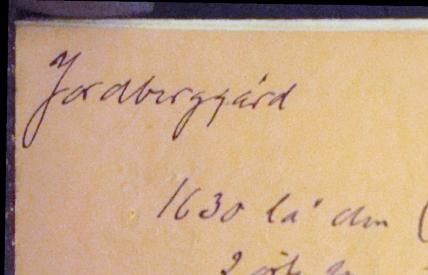 Jordberggård
1630 la' dm (
2